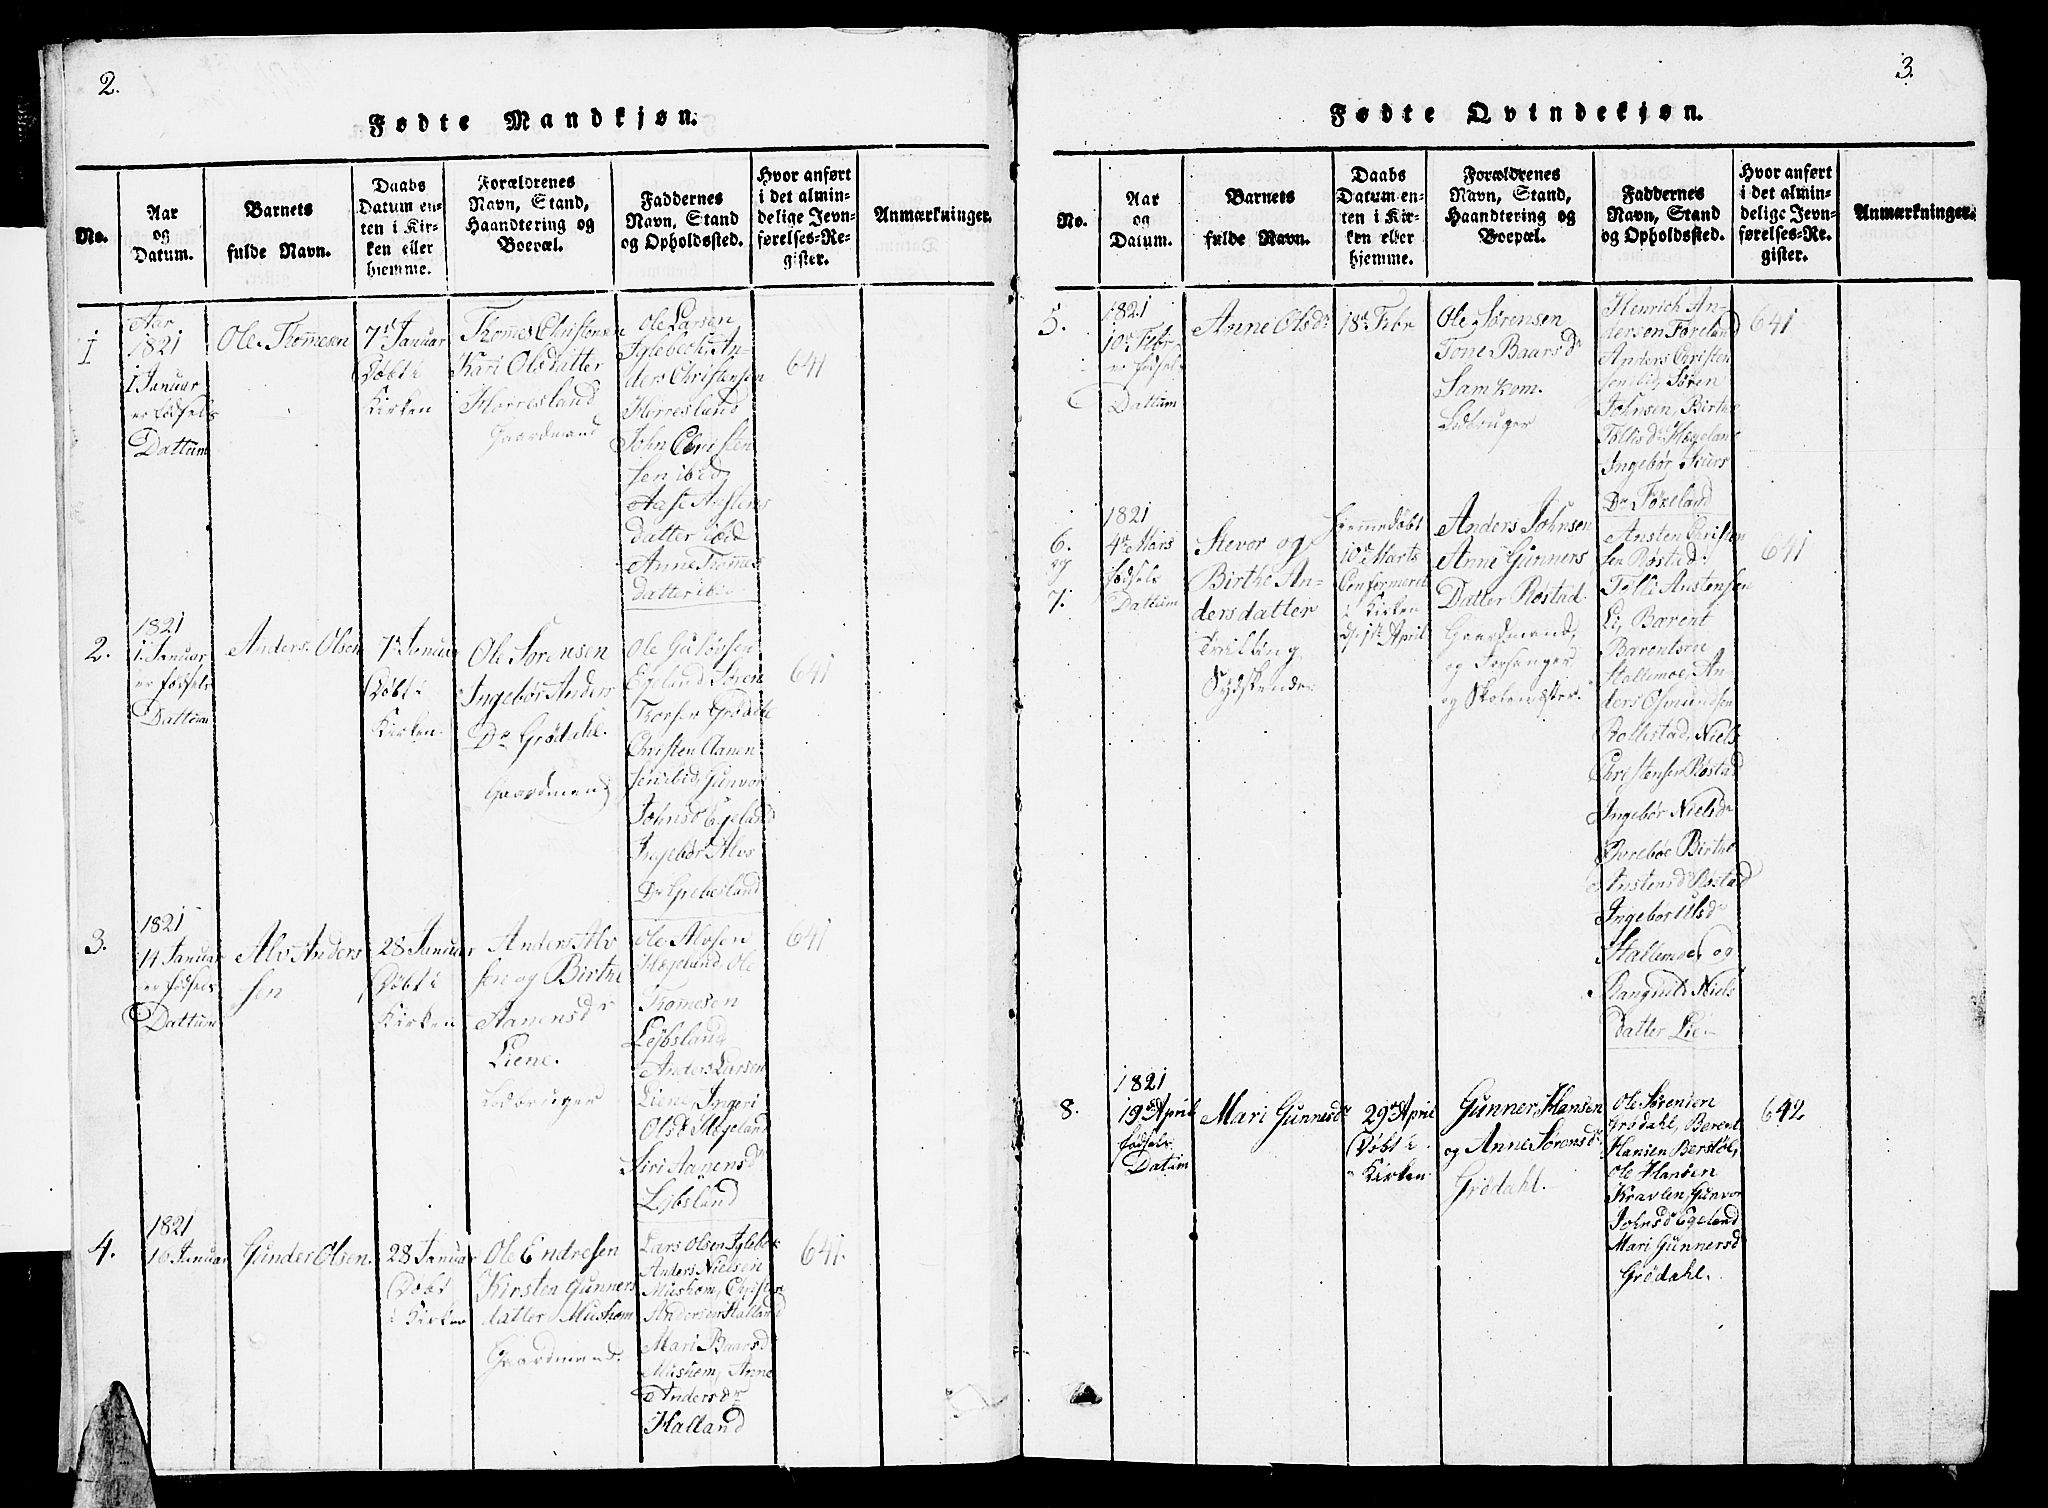 2.
Fødte Mandkjøn.
No.
Aar
og
Datum.
Barnets
fulde Navn.
Daabs
Datum en-
ten i Kir-
ken eller
hjemme.
Forældrenes
Navn, Stand,
Haandtering og
Boepæl.
Faddernes
Navn, Stand
og Opholdssted.
Hvor anført
i det almin-
delige Jevn-
førelses-Re-
gister.
Anmærkninger.
1
Aar
1821
1 Januar
er fødsels
Dattum
Ole Thomesen
7de Januar
Døbt i
Kirken
Thomes Christensen
Kari Olsdatter
Horresland
Gaardmand
Ole Larsen
Iglebech, An-
ders Christensen
Horresland
John Christen
sen ibid,
Aase Anstens
datter ibid
Anne Thomes
datter ibid.
641
2.
1821
1. Januar
er fødsels
Dattum
Anders Olsen
7de Januar
Døbt i
Kirken.
Ole Sørensen
Ingebør Anders
Dr Grødahl.
Gaardmand
Ole
Egeland, Søren
Grødahl
Christen Aanen-
sen ibid, Gunvor
Johnsdr Egeland
Ingebør Alvs
Dr Grebesland
641
3.
1821
14 Januar
er fødsels
Dattum
Alv Anders
sen
28 Januar
Døbt i
Kirken
Anders Alv
sen og Birthe
Aanensdr
Liene.
Ledbruger
Ole Alvsen
Hægeland, Ole
Thomesen
Lejbsland
Anders Larsen
Liene, Ingeri
Olsdr Hægeland
Siri Aanensdr
Lejbsland
641
4.
1821
16 Januar
Gunder Olsen.
28 Januar
Døbt
i Kirken
Ole Endresen
Kirsten Gunners
datter Mushom
Gaardmand.
Lars Olsen Iglebek
Anders Nielsen
Mushom, Christen
Andersen Hatland
Mari Baarsdr
Mushom, Anne
Andersdr
Hatland
641.
3.
Fødte Qvindekjøn.
No.
Aar
og
Datum.
Barnets
fulde Navn.
Daabs
Datum en-
ten i Kir-
ken eller
hjemme.
Forældrenes
Navn, Stand,
Haandtering og
Boepæl.
Faddernes
Navn, Stand
og Opholdssted.
Hvor anført
i det almin-
delige Jevn-
førelses-Re-
gister.
Anmærkninger.
5.
1821
10de Febr
er fødsels
Dattum
Anne Olsdr
18de Febr
Ole Sørensen
Tone Baarsdr
Samkom.
Ledbruger
Henrich An-
dersen Føreland
Anders Christen
sen ibid, Søren
Johnsen, Birthe
Tollisdr Hægeland
Ingebør
Dr Føreland
641
6.
og
7.
1821
4de Mars
fødsels
Dattum
Stevor og
Birthe An-
dersdatter
Tvilling
Sydskende.
Hjemmedøbt
10de Marts
Confermeret
i Kirken
d. 1ste April
Anders Johnsen
Anne Gunners
Datter Røstad.
Gaardmand,
og Forsanger
og Skolemester.
Ansten Christen
sen Røstad.
Tolli Anstensen
Li, Barent
Barentsen
Stallemoe, An-
ders Osmundsen
Rollestad, Niels
Christensen Røstad
Ingebør Nielsdr
Øvrebøe Birthe
Anstensdr Røstad
Ingebør Olsdr
Stallemoe, og
Rangnil Niels
datter Lie.
641
8.
1821
19de April
fødsels
Datum
Mari Gunnersdr
29de April
Døbt i
Kirken
Gunner Hansen
og Anne Sørensdr
Grødahl.
Ole Sørensen
Grødahl, Berent
Hansen Berstøl,
Ole Hansen
Kravlen, Gunvor
Johnsdr Egeland
Mari Gunnersd
Grødahl.
642